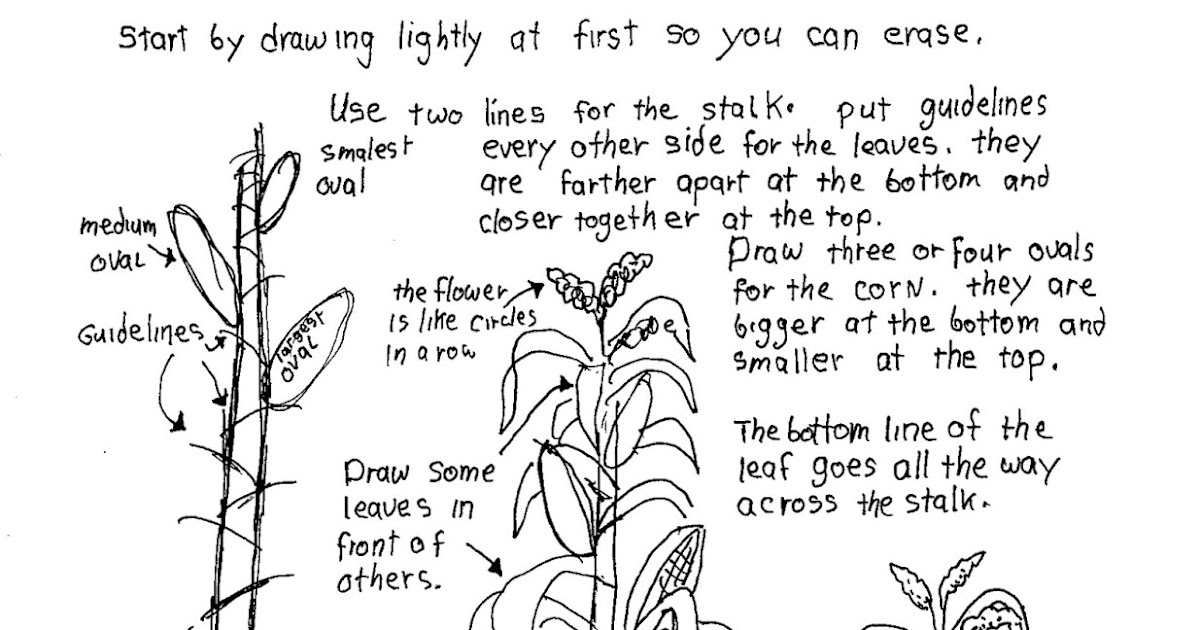 Start by drawing lightly at first so you can erase.
Use two lines for the stalk. put guidelines
every other side for the leaves. they
are farther apart at the bottom and
closer together at the top.
smalest
oval
medium
oval
Guidelines
largest
oval
the flower
is like circles
in a row
Draw three or four ovals
for the corn. they are
bigger at the bottom and
smaller at the top.
The bottom line of the
leaf goes all the way
across the stalk.
Draw some
leaves in
front of
others.